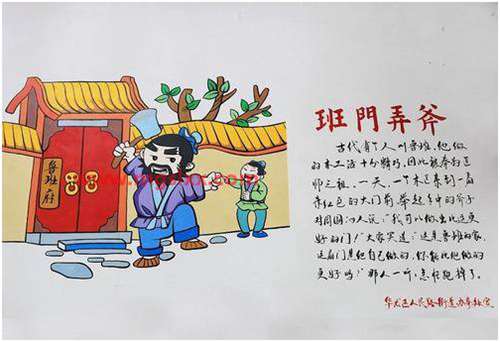 班門弄斧
古代有个人叫鲁班,他做
的木工活十分精巧,因此被奉为巨
师之祖。一天,一个木匠来到一扇
朱红色的大门前,举起手中的斧子
对周围的人说:"我可以做出比这更
好的门!"大家笑道:"这是鲁班的家,
这扇门是他自己做的,你能比他做的
更好吗?"那人一听,急忙跑掉了。
华龙区人民路街道办事处宣
鲁班府